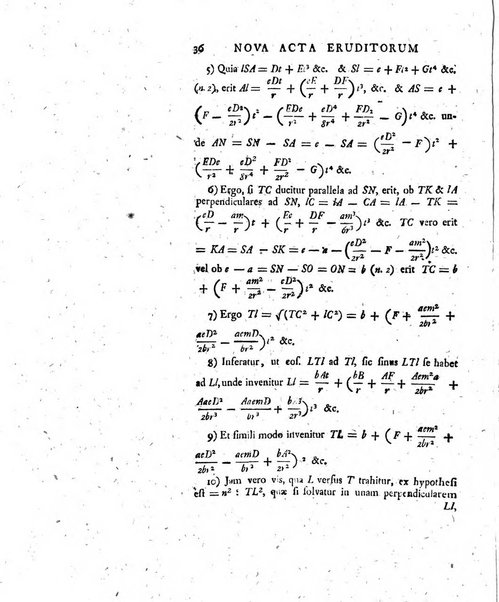 36 NOVA ACTA ERUDITORUM
5) Quia lSA = Dt + Et³ &c. & Sl = e + Ft² + Gt⁴ &c.
(n. 2), erit Al = eDt/r + (eE/r + DF/r)t³, &c. & AS = e +
(F − eD²/2r²)t² − (EDe/r² + eD⁴/8r⁴ + FD²/2r² − G)t⁴ &c. un-
de AN = SN − SA = e − SA = (eD²/2r² − F)t² +
(EDe/r² + eD²/8r⁴ + FD²/2r² − G)t⁴ &c.
6) Ergo, si TC ducitur parallela ad SN, erit, ob TK & lA
perpendiculares ad SN, lC = lA − CA = lA − TK =
(eD/r − am/r)t + (Ee/r + DF/r − am³/6r³)t³ &c. TC vero erit
= KA = SA − SK = e − a − (eD²/2r² − F − am²/2r²)t² &c.
vel ob e − a = SN − SO = ON = b (n. 2) erit TC = b
+ (F + am²/2r² − eD²/2r²)t² &c.
7) Ergo Tl = √(TC² + lC²) = b + (F + aem²/2br² +
aeD²/2br² − aemD/br²)t² &c.
8) Inferatur, ut cos. LTl ad Tl, sic sinus LTl se habet
ad Ll, unde invenitur Ll = bAt/r + (bB/r + AF/r + Aem²a/2br³ +
AaeD²/2br³ − AaemD/br³ + bA³/2r³)t³ &c.
9) Et simili modo invenitur TL = b + (F + aem²/2br² +
aeD²/2br² − aemD/br² + bA²/2r²)t² &c.
10) Jam vero vis, qua L versus T trahitur, ex hypothesi
est = n² : TL², quæ si solvatur in unam perpendicularem
Ll,